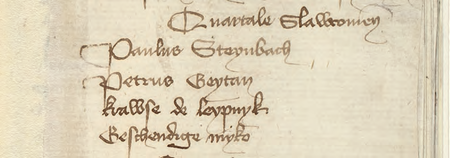 Quartale Slawronien
Paulus Steynbach
Petrus Geytan
krawse de leypnyk
Geschendige myko